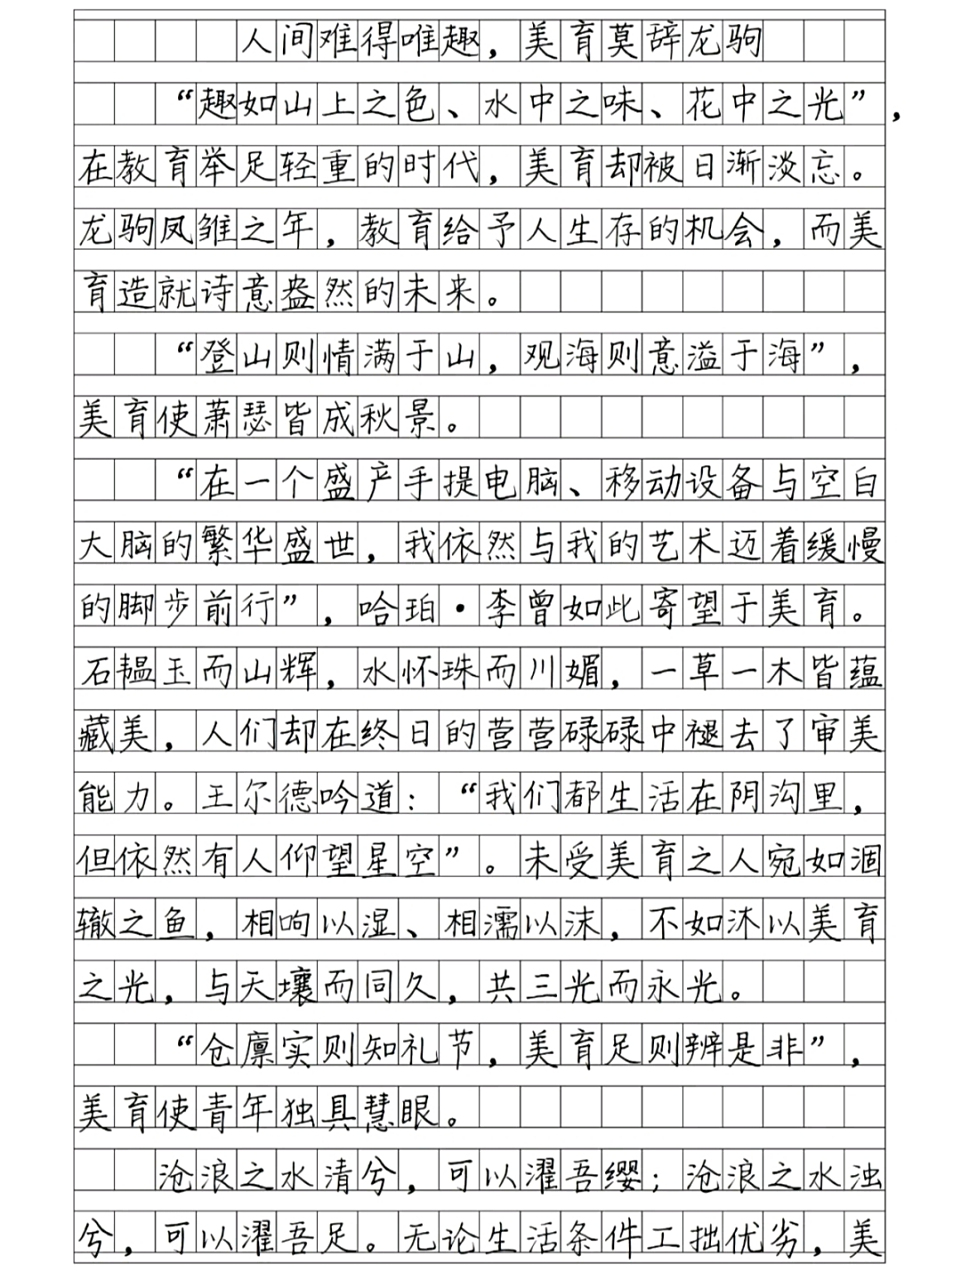 人间难得唯趣，美育莫辞龙驹
“趣如山上之色、水中之味、花中之光”，
在教育举足轻重的时代，美育却被日渐淡忘。
龙驹凤雏之年，教育给予人生存的机会，而美
育造就诗意盎然的未来。
“登山则情满于山，观海则意溢于海”，
美育使萧瑟皆成秋景。
“在一个盛产手提电脑、移动设备与空白
大脑的繁华盛世，我依然与我的艺术迈着缓慢
的脚步前行”，哈珀·李曾如此寄望于美育。
石韫玉而山辉，水怀珠而川媚，一草一木皆蕴
藏美，人们却在终日的营营碌碌中褪去了审美
能力。王尔德吟道：“我们都生活在阴沟里，
但依然有人仰望星空”。未受美育之人宛如涸
辙之鱼，相呴以湿、相濡以沫，不如沐以美育
之光，与天壤而同久，共三光而永光。
“仓廪实则知礼节，美育足则辨是非”，
美育使青年独具慧眼。
沧浪之水清兮，可以濯吾缨；沧浪之水浊
兮，可以濯吾足。无论生活条件工拙优劣，美